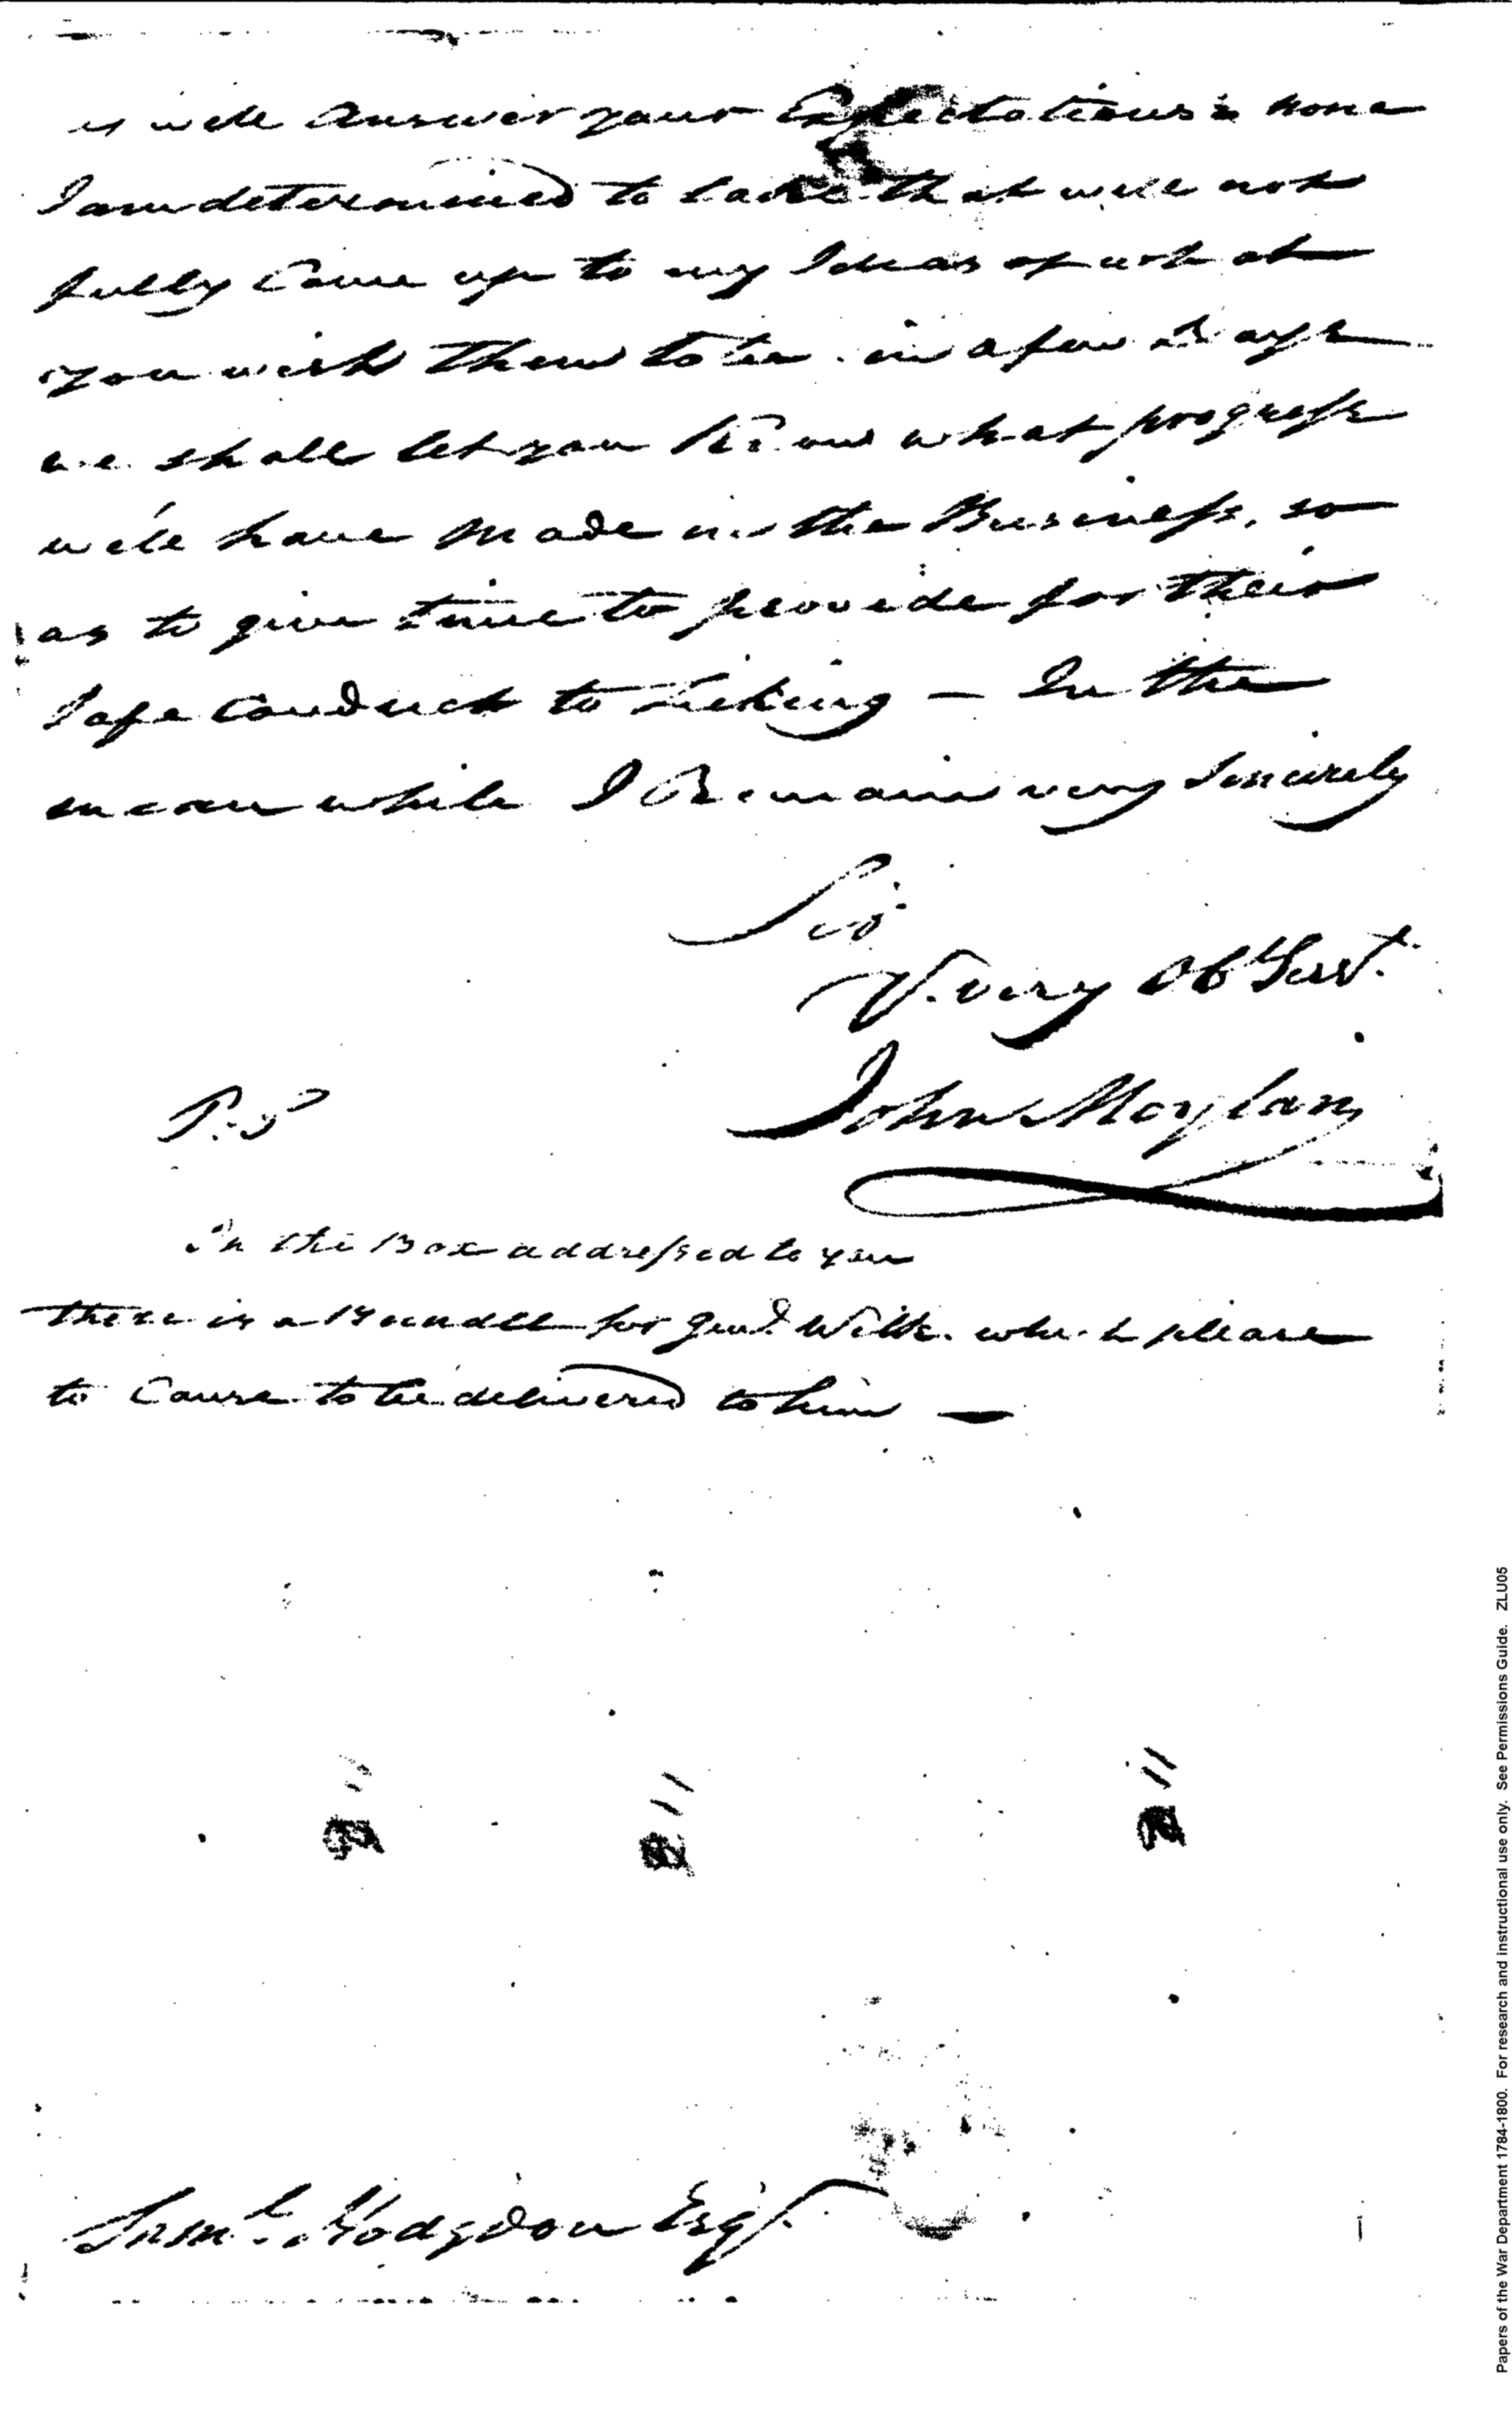 is will Answer your Expectations & none
I am determined to take that will not
fully Come up to my Ideas of what
you wish them to be. in a few Days
we shall let you Know what progress
we'le have Made in the Business, so
as to give time to provide for their
Safe Conduct to Licking — In the
mean while I Remain very Sincerely
Sir
Y. very Ob Servt.
John Moylan
P.S
In the Box addressed to you
there is a Bundle for Genl. Wilk. which please
to Cause to be delivered to him —
Saml. Hodgdon Esqr.
Papers of the War Department 1784-1800. For research and instructional use only. See Permissions Guide. ZLU05